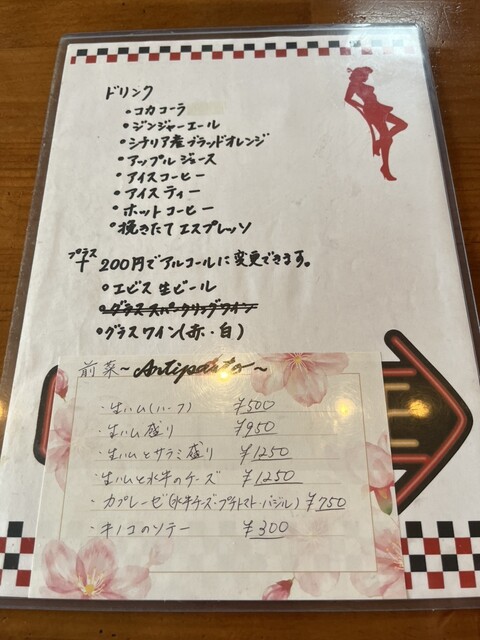 ドリンク
・コカコーラ
・ジンジャーエール
・シチリア産ブラッドオレンジ
・アップルジュース
・アイスコーヒー
・アイスティー
・ホットコーヒー
・挽きたてエスプレッソ
プラス
+ 200円でアルコールに変更できます。
・エビス生ビール
・グラススパークリングワイン
・グラスワイン(赤・白)
前菜~Antipasto~
・生ハム(ハーフ) ¥500
・生ハム盛り ¥950
・生ハムとサラミ盛り ¥1250
・生ハムと水牛のチーズ ¥1250
・カプレーゼ(水牛チーズ・プチトマト・バジル) ¥750
・キノコのソテー ¥300